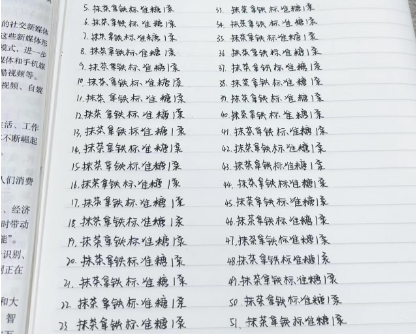 的社交新媒体
这些新媒体形
模式，进一步
媒体和手机媒
视频等。
视频、自媒
生活、工作
不断崛起
人们消费
、经济
时带动
能”。
识别、
正在
和大
智
5. 抹茶拿铁标准糖1条
6. 抹茶拿铁标准糖1条
7. 抹茶拿铁标准糖1条
8. 抹茶拿铁标准糖1条
9. 抹茶拿铁标准糖1条
10. 抹茶拿铁标准糖1条
11. 抹茶拿铁标准糖1条
12. 抹茶拿铁标准糖1条
13. 抹茶拿铁标准糖1条
14. 抹茶拿铁标准糖1条
15. 抹茶拿铁标准糖1条
16. 抹茶拿铁标准糖1条
17. 抹茶拿铁标准糖1条
18. 抹茶拿铁标准糖1条
19. 抹茶拿铁标准糖1条
20. 抹茶拿铁标准糖1条
21. 抹茶拿铁标准糖1条
22. 抹茶拿铁标准糖1条
23. 抹茶拿铁标准糖1条
33. 抹茶拿铁标准糖1条
34. 抹茶拿铁标准糖1条
35. 抹茶拿铁标准糖1条
36. 抹茶拿铁标准糖1条
37. 抹茶拿铁标准糖1条
38. 抹茶拿铁标准糖1条
39. 抹茶拿铁标准糖1条
40. 抹茶拿铁标准糖1条
41. 抹茶拿铁标准糖1条
42. 抹茶拿铁标准糖1条
43. 抹茶拿铁标准糖1条
44. 抹茶拿铁标准糖1条
45. 抹茶拿铁标准糖1条
46. 抹茶拿铁标准糖1条
47. 抹茶拿铁标准糖1条
48. 抹茶拿铁标准糖1条
49. 抹茶拿铁标准糖1条
50. 抹茶拿铁标准糖1条
51. 抹茶拿铁标准糖1条